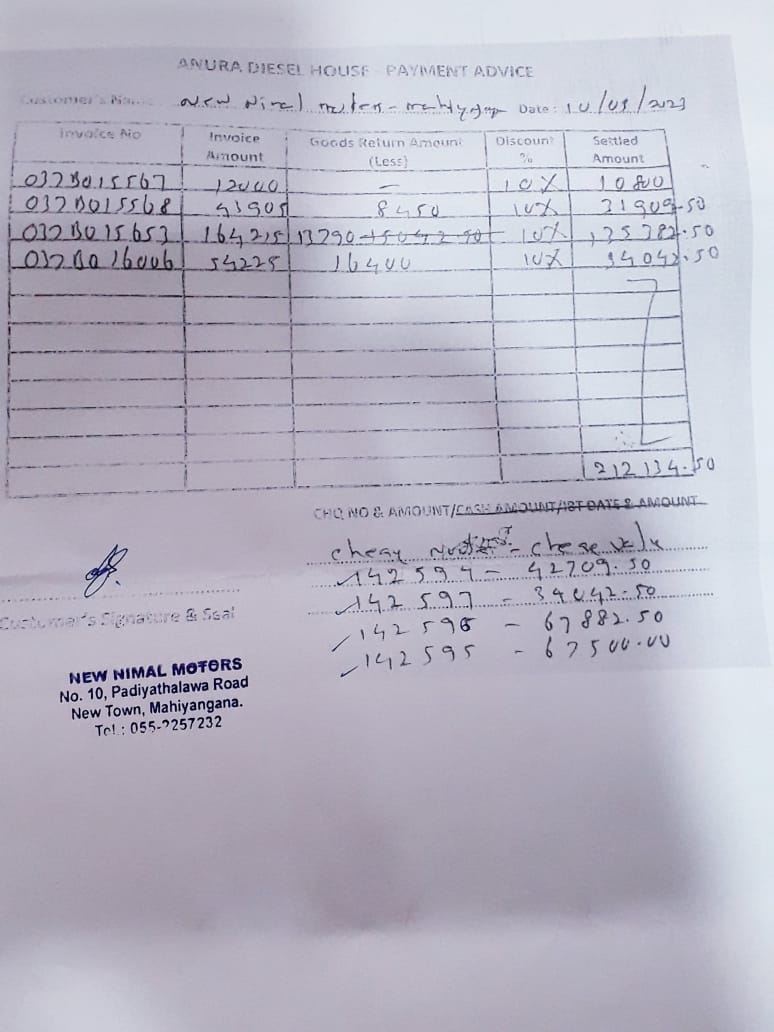 ANURA DIESEL HOUSE - PAYMENT ADVICE
Customer's Na... New Nimal Date: 10/01/2023
Invoice No Invoice Amount Goods Return Amount (Less) Discount % Settled Amount
037B015567 12000 – 10% 10800
037B015568 43905 8450 10% 31909.50
037B015653 164215 13790 15042.50 10% 135382.50
037BA16006 54225 16400 10% 34042.50
212134.50
CHQ NO & AMOUNT/CASH AMOUNT/IBT DATE & AMOUNT
142594 – 42709.50
142597 – 34042.50
142596 – 67882.50
142595 – 67500.00
Customer's Signature & Seal
NEW NIMAL MOTORS
No. 10, Padiyathalawa Road
New Town, Mahiyangana.
Tel.: 055-2257232